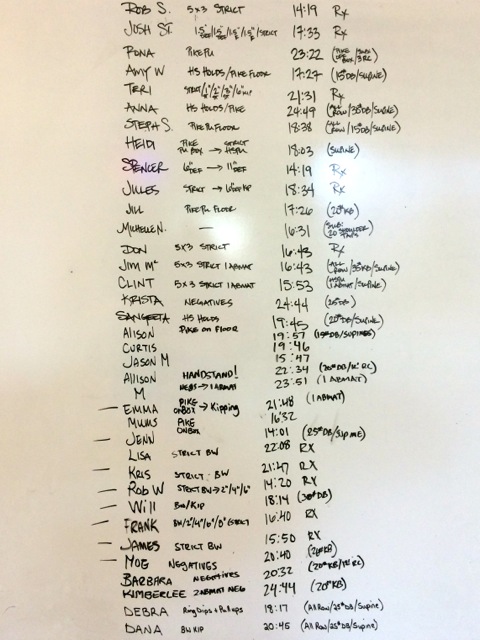 ROB S. 5x3 STRICT 14:19 Rx
JOSH ST. STRICT 17:33 Rx
RONA PIKE PU 23:22
AMY W HS HOLDS/PIKE FLOOR 17:27 (15#DB/SUPINE)
TERI 21:31 Rx
ANNA HS HOLDS/PIKE 24:49
STEPH S. PIKE PU FLOOR 18:38
HEIDI PIKE PU BOX → STRICT HSPU 18:03 (SUPINE)
SPENCER 6" DEF → 11" DEF 14:19 Rx
JULES STRICT → 18:34 Rx
JILL PIKE PU FLOOR 17:26 (20#KB)
MICHELLE N. — 16:31
DON 5x3 STRICT 16:43 Rx
JIM Mc 5x3 STRICT 1 ABMAT 16:43
CLINT 5x3 STRICT 1 ABMAT 15:53
KRISTA NEGATIVES 24:44 (25#DB)
SANGEETA HS HOLDS 19:45 (20#DB/SUPINE)
ALISON PIKE ON FLOOR 19:57 (15#DB/SUPINES)
CURTIS 19:46
JASON M 15:47
ALLISON M HANDSTAND! NEGS → 1 ABMAT 22:34
23:51 (1 ABMAT)
— EMMA PIKE ON BOX → Kipping 21:48 (1 ABMAT)
MUMS PIKE ON BOX 16:32
— JENN 14:01 (25#DB/SUPINE)
LISA STRICT BW 22:08 RX
— KRIS STRICT BW 21:47 RX
— ROB W STRICT BW → 2"/4"/6" 14:20 RX
— Will BW/KIP 18:14 (30#DB)
— FRANK 16:40 RX
— JAMES STRICT BW 15:50 RX
— MOE NEGATIVES 20:40
BARBARA NEGATIVES 20:32
KIMBERLEE 2 ABMAT NEG 24:44 (20#KB)
DEBRA Ring Dips + Pullups 18:17 (All Row/25#DB/Supine)
DANA BW KIP 20:45 (All Row/25#DB/Supine)